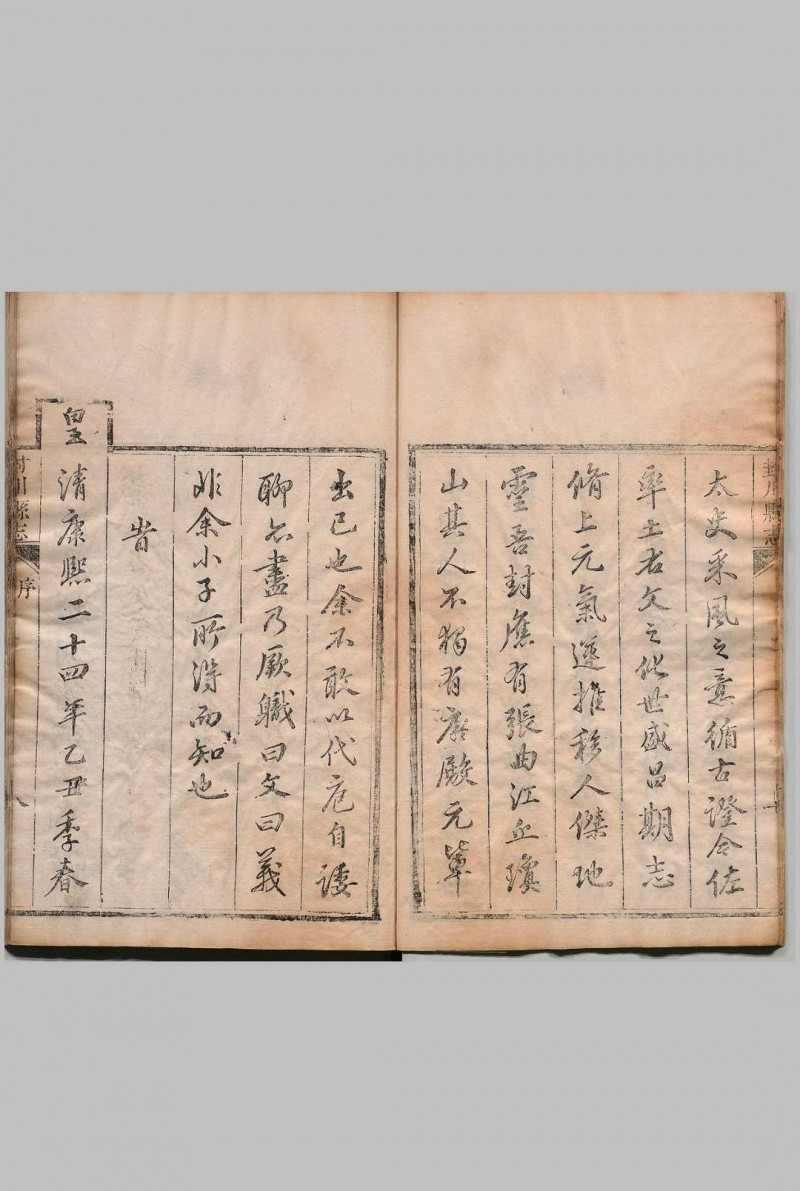 封川縣志
太史采風之意循古證今佐
率土右文之化世盛呂期志
脩上元氣遞推移人傑地
靈吾封應有張曲江丘瓊
山其人不獨有莫殿元輩
出已也余不敢以代庖自諉
聊亦盡乃厥職曰文曰義
非余小子所得而知也
旹
皇
清康熙二十四年乙丑季春
封川縣志
序
八